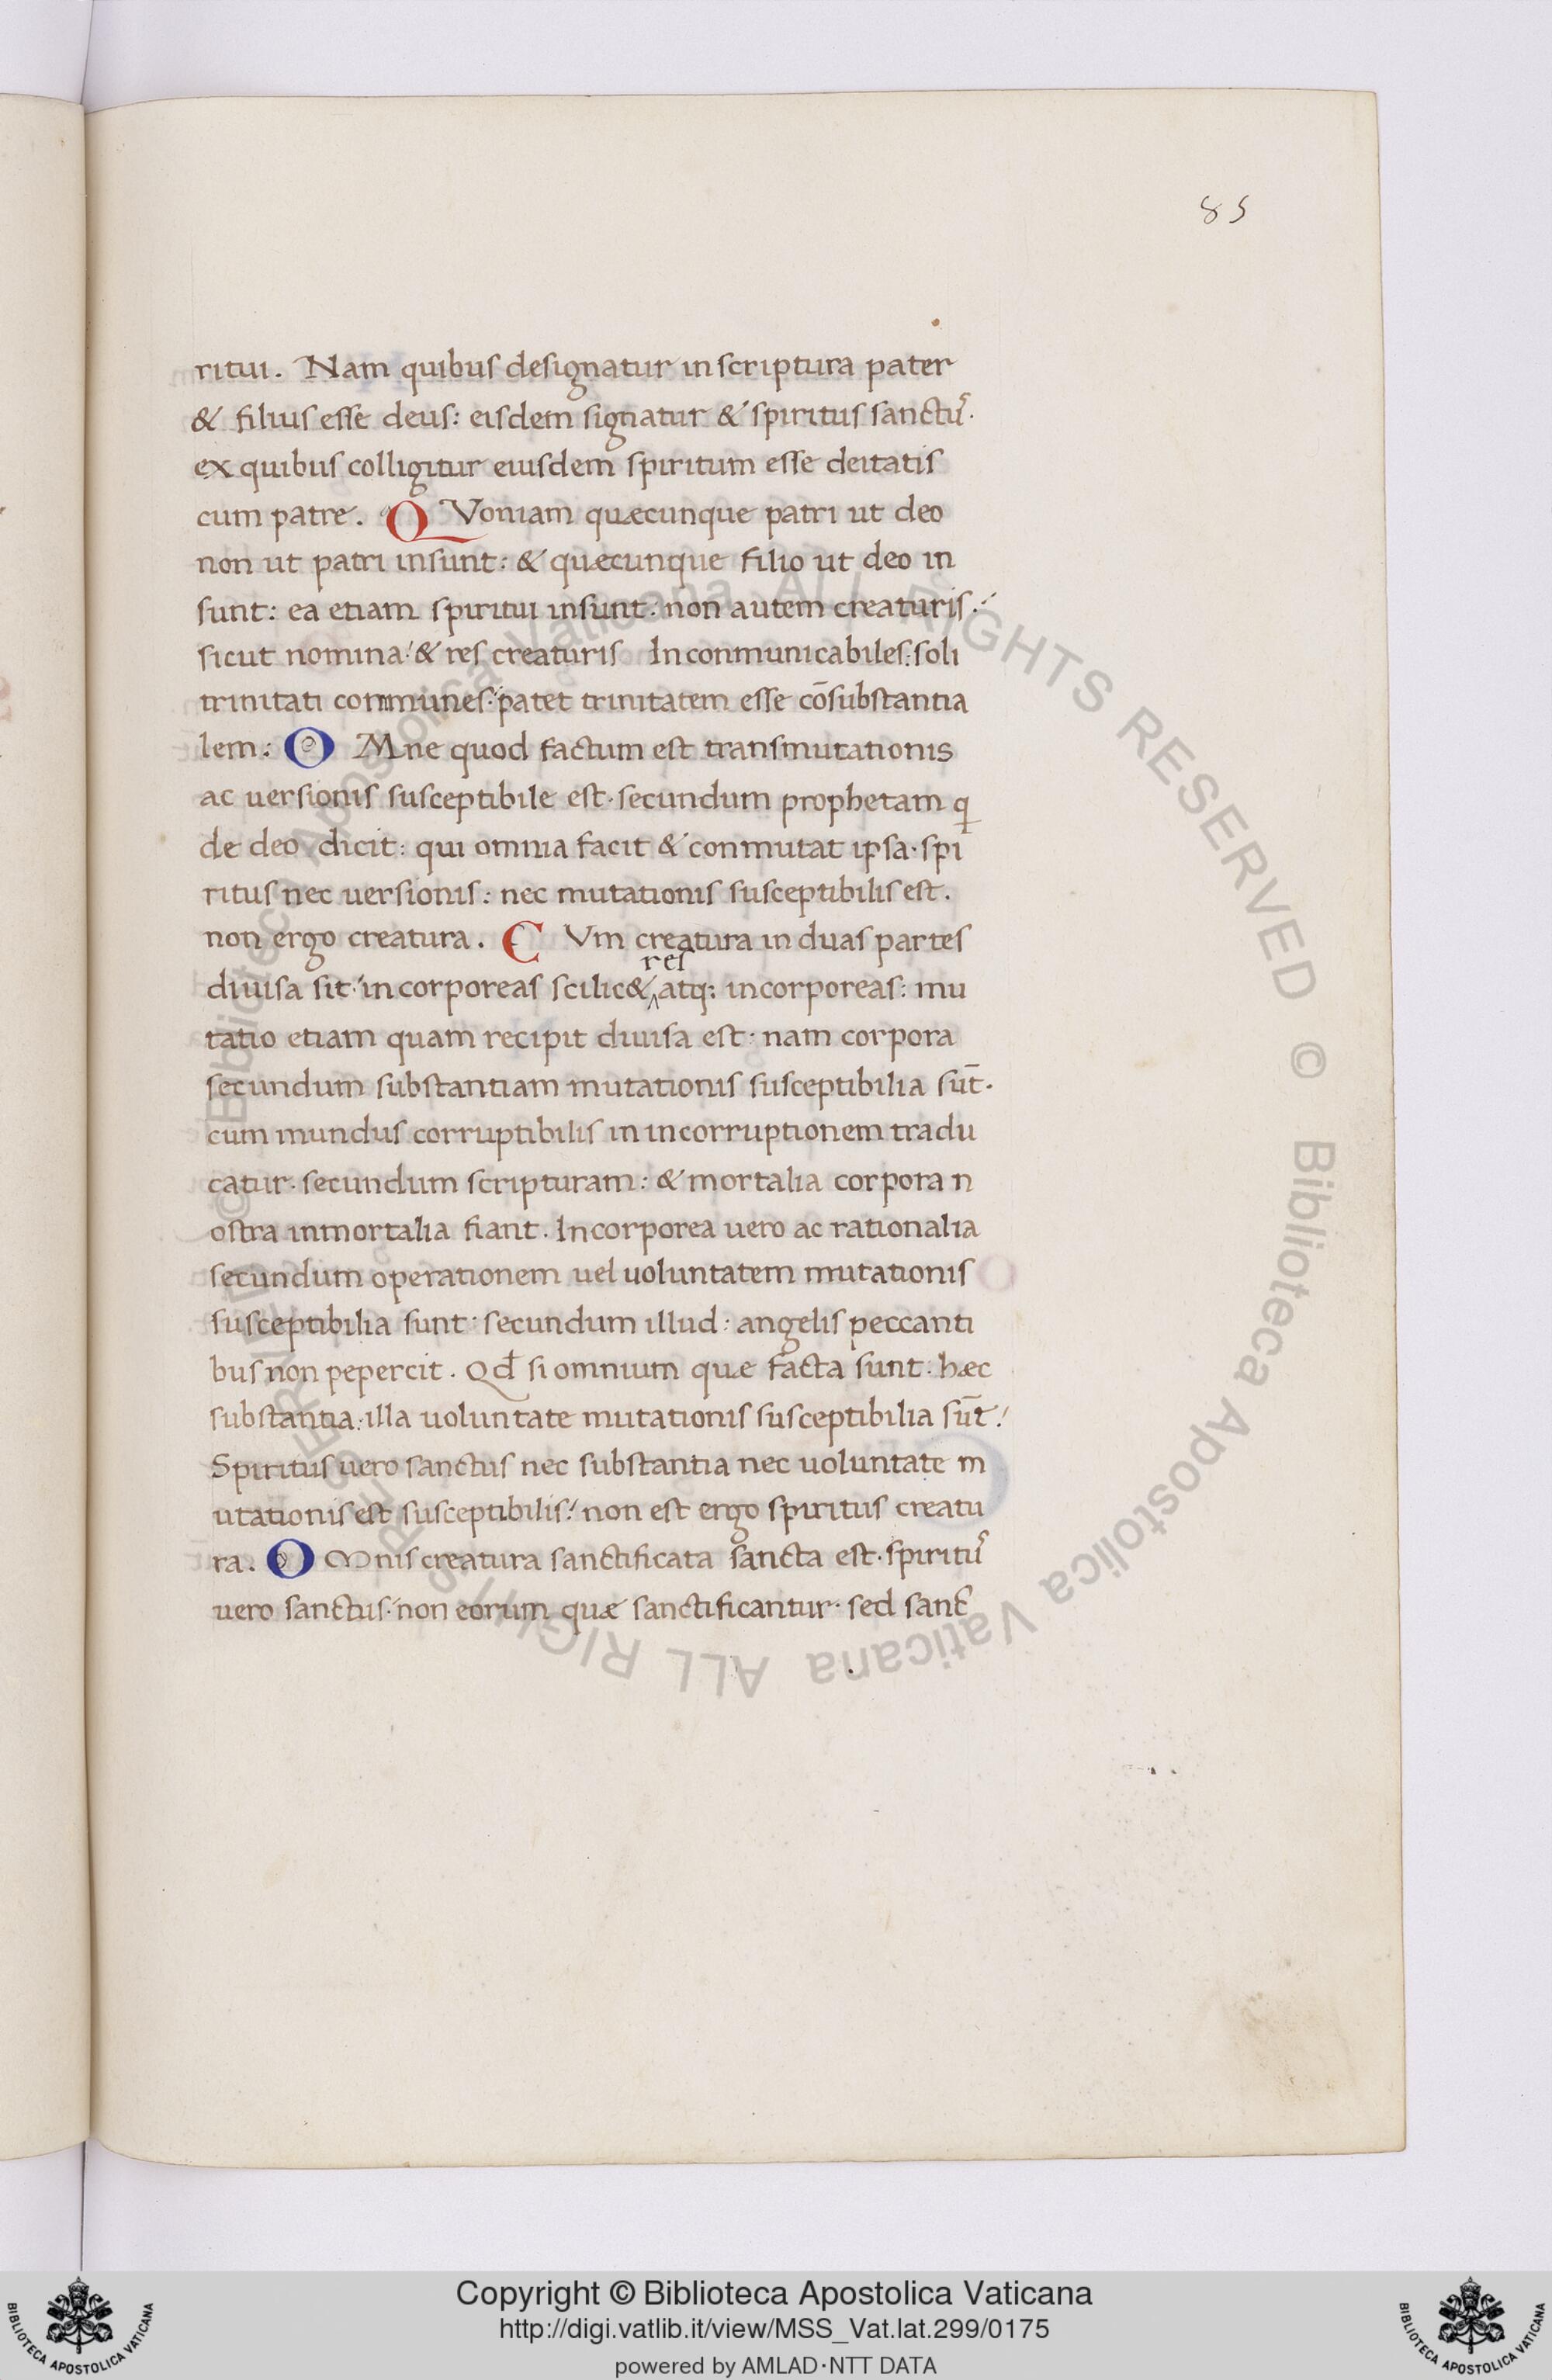 85
ritui. Nam quibus designatur in scriptura pater
& filius esse deus: eisdem signatur & spiritus sanctuꝰ.
ex quibus colligitur eiusdem spiritum esse deitatis
cum patre. QVoniam quæcunque patri ut deo
non ut patri insunt: & quæcunque filio ut deo in
sunt: ea etiam spiritui insunt: non autem creaturis.
sicut nomina & res creaturis Inconmunicabiles: soli
trinitati conmunes patet trinitatem esse cōsubstantia
lem: OMne quod factum est transmutationis
ac uersionis susceptibile est· secundum prophetam q
de deo dicit: qui omnia facit & conmutat ipsa· spi
ritus nec uersionis: nec mutationis susceptibilis est.
non ergo creatura. CVm creatura in duas partes
res
diuisa sit· incorporeas scilic& atq: incorporeas: mu
tatio etiam quam recipit diuisa est: nam corpora
secundum substantiam mutationis susceptibilia sūt.
cum mundus corruptibilis in incorruptionem tradu
catur· secundum scripturam: & mortalia corpora n
ostra inmortalia fiant. Incorporea uero ac rationalia
secundum operationem uel uoluntatem mutationis
susceptibilia sunt· secundum illud: angelis peccanti
bus non pepercit. Qđ si omnium quæ facta sunt· hæc
substantia: illa uoluntate mutationis susceptibilia sūt:
Spiritus uero sanctus nec substantia nec uoluntate m
utationis est susceptibilis: non est ergo spiritus creatu
ra. OMnis creatura sanctificata sancta est· spirituꝰ
uero sanctus· non eorum quæ sanctificantur· sed sanc̄
© Biblioteca Apostolica Vaticana ALL RIGHTS RESERVED © Biblioteca Apostolica Vaticana ALL RIGHTS RESERVED
BIBLIOTECA APOSTOLICA VATICANA
Copyright © Biblioteca Apostolica Vaticana
http://digi.vatlib.it/view/MSS_Vat.lat.299/0175
powered by AMLAD·NTT DATA
BIBLIOTECA APOSTOLICA VATICANA